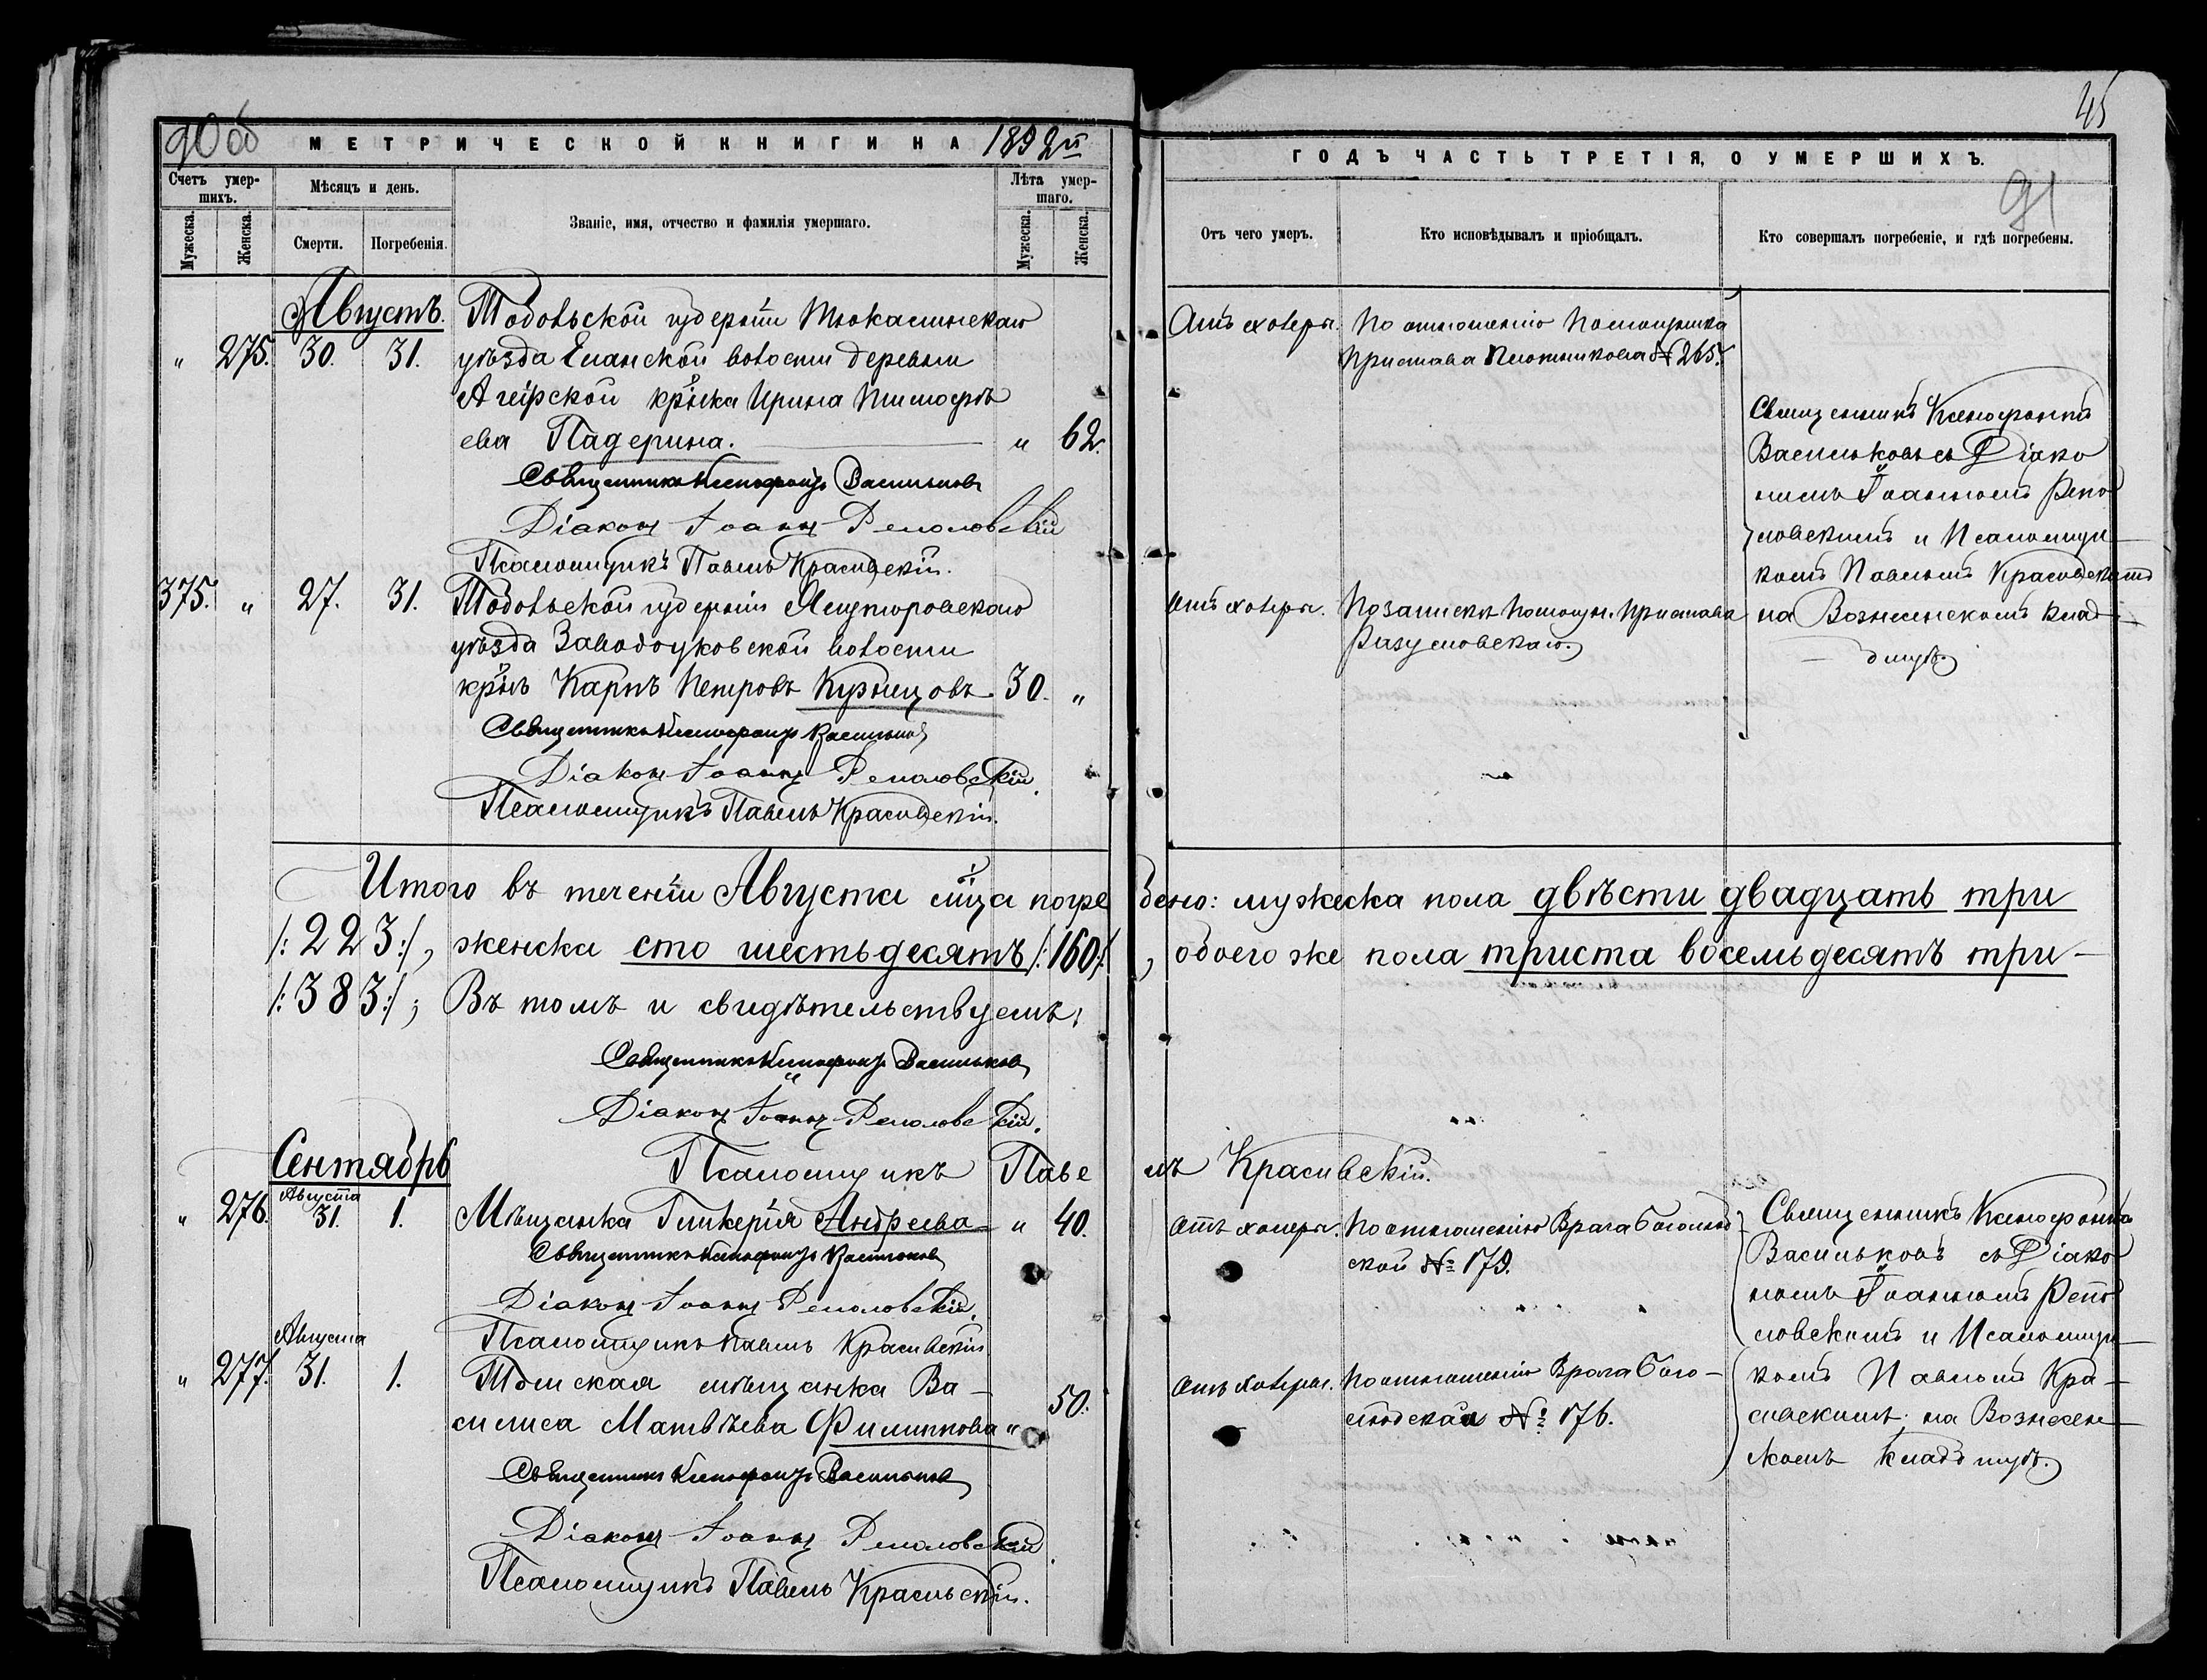 90 об
МЕТРИЧЕСКОЙ КНИГИ НА 1892й
Счетъ умер-
шихъ.
Мѣсяцъ и день.
Званіе, имя, отчество и фамилія умершаго.
Лѣта умер-
шаго.
Мужеска.
Женска.
Смерти.
Погребенія.
Мужеска.
Женска.
Августъ.
Тобольской губерніи Тюкалинскаго
" 275. 30. 31. уѣзда Еланской волости деревни
крⷭ҇нка Ирина Тимофѣ
ева Падерина. " 62.
Священникъ Ксенофонтъ Васильковъ
Діаконъ Іоаннъ Реполовскій
Псаломщикъ Павелъ Красивскій.
375. " 27. 31. Тобольской губерніи Ялуторовскаго
уѣзда Заводоуковской волости
крⷭ҇нъ Карпъ Петровъ Кузнецовъ. 30. "
Священникъ Ксенофонтъ Васильковъ
Діаконъ Іоаннъ Реполовскій.
Псаломщикъ Павелъ Красивскій.
45
ГОДЪ ЧАСТЬ ТРЕТІЯ, О УМЕРШИХЪ.
91
Отъ чего умеръ.
Кто исповѣдывалъ и пріобщалъ.
Кто совершалъ погребеніе, и гдѣ погребены.
Отъ холеры. По отношенію Помощника
Пристава Плотникова № 265.
Священникъ Ксенофонтъ
Васильковъ съ Діако
номъ Іоанномъ Репо
ловскимъ и Псаломщи
комъ Павломъ Красивскимъ
Отъ холеры. По запискѣ Помощн. Пристава на Вознесенскомъ клад-
Разумовскаго. бищѣ.
Итого въ теченіи Августа мⷭ҇ца погребено: мужеска пола двѣсти двадцать три
/:223:/, женска сто шестьдесятъ /:160:/, обоего же пола триста восемьдесятъ три
/:383:/; Въ томъ и свидѣтельствуемъ:
Священникъ Ксенофонтъ Васильковъ
Діаконъ Іоаннъ Реполовскій.
Псаломщикъ Павелъ Красивскій.
Сентябрь
Августа
" 276. 31. 1. Мѣщанка Гликерія Андреева " 40.
Священникъ Ксенофонтъ Васильковъ
Діаконъ Іоаннъ Реполовскій.
Псаломщикъ Павелъ Красивскій
Августа
" 277. 31. 1. Томская мѣщанка Ва-
50.
силиса Матвѣева Филиппова "
Священникъ Ксенофонтъ Васильковъ
Діаконъ Іоаннъ Реполовскій.
Псаломщикъ Павелъ Красивскій.
Отъ холеры. По отношенію Врача Боголюб
ской № 179.
Отъ холеры. По отношенію Врача Бого-
любской № 176.
Священникъ Ксенофонтъ
Васильковъ съ Діако
номъ Іоанномъ Репо
ловскимъ и Псаломщи-
комъ Павломъ Кра-
сивскимъ на Вознесен-
скомъ кладбищѣ.